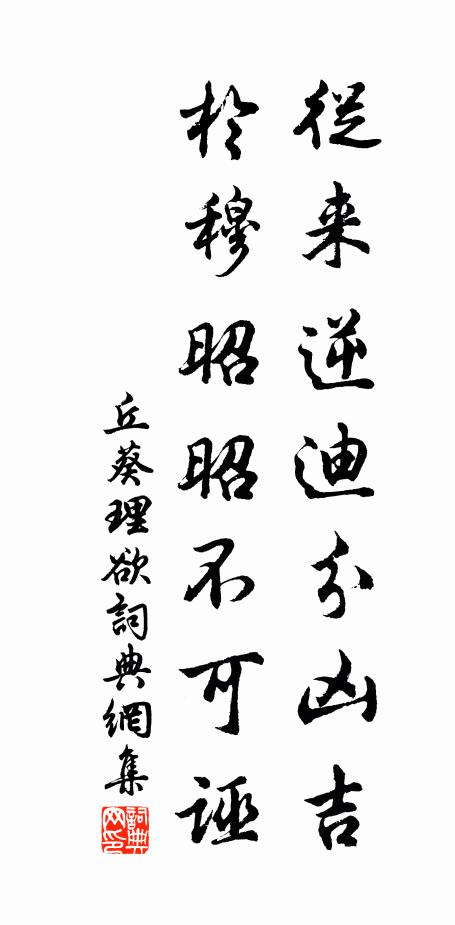 從来逆迪分凶吉
於穆昭昭不可誣
丘葵理欲詞典網集
詞典網印